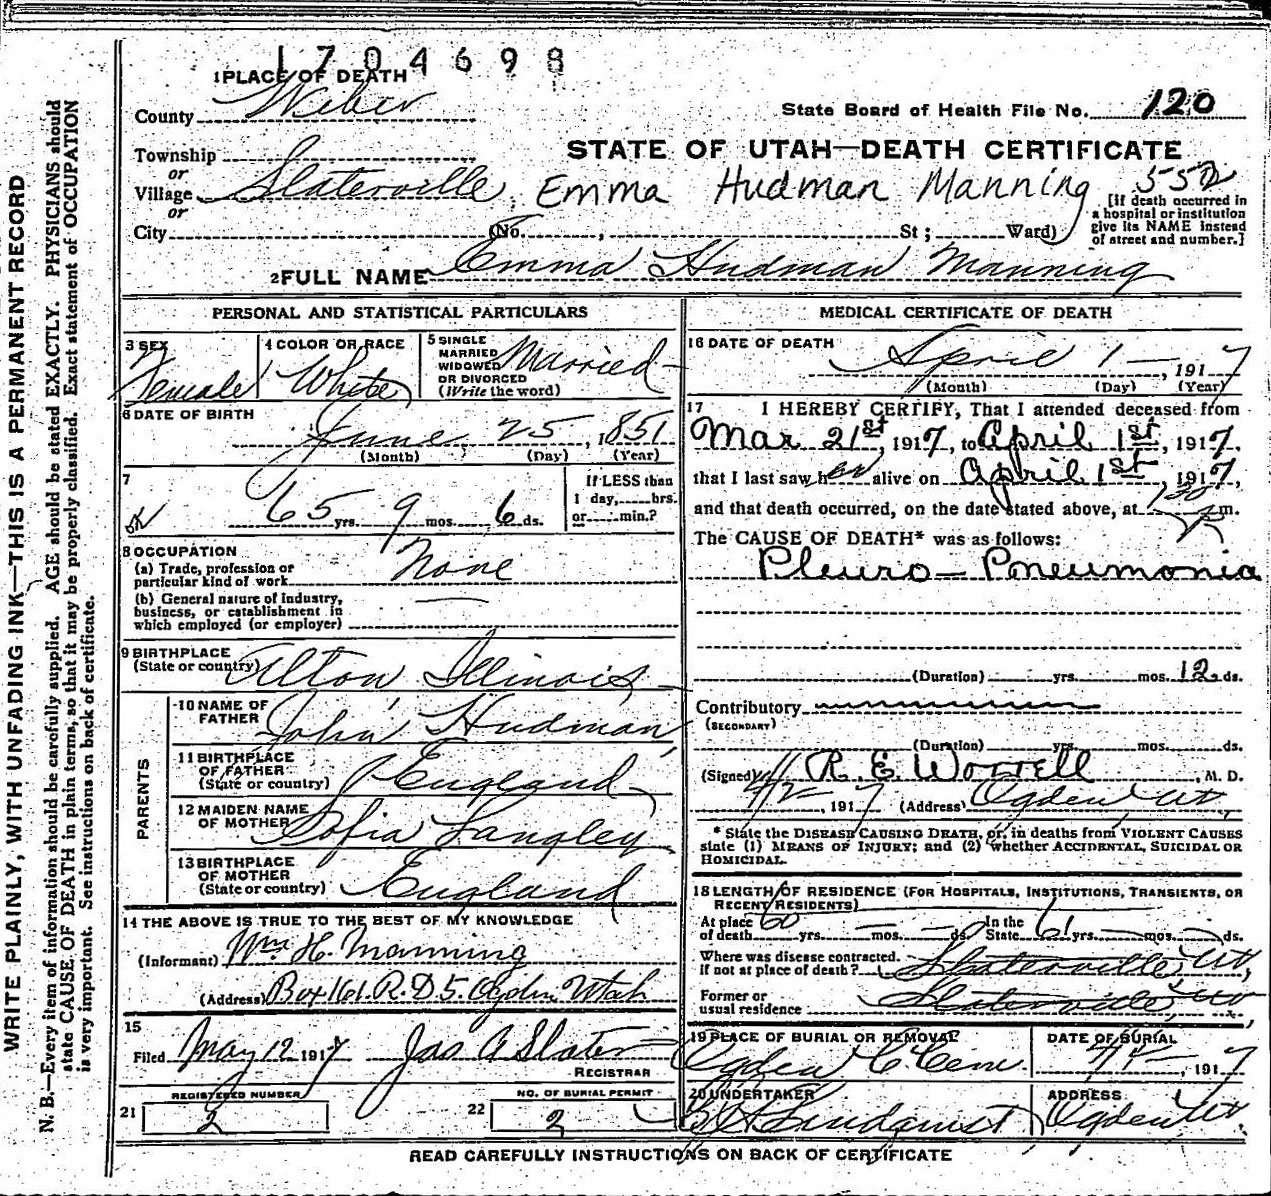 1704698
1 PLACE OF DEATH
County Weber
State Board of Health File No. 120
Township
or
STATE OF UTAH—DEATH CERTIFICATE
Village Slaterville, Emma Hudman Manning
or
City (No. , St; Ward)
[If death occurred in
a hospital or institution
give its NAME instead
of street and number.]
2 FULL NAME Emma Hudman Manning
PERSONAL AND STATISTICAL PARTICULARS
3 SEX
Female
4 COLOR OR RACE
White
5 SINGLE
MARRIED
WIDOWED
OR DIVORCED
(Write the word)
Married
6 DATE OF BIRTH
June, 25, 1851
(Month) (Day) (Year)
7
65 yrs. 9 mos. 6 ds.
If LESS than
1 day, hrs.
or min.?
8 OCCUPATION
(a) Trade, profession or
particular kind of work None
(b) General nature of industry,
business, or establishment in
which employed (or employer)
9 BIRTHPLACE
(State or country) Alton Illinois
PARENTS
10 NAME OF
FATHER John Hudman
11 BIRTHPLACE
OF FATHER
(State or country) England
12 MAIDEN NAME
OF MOTHER Sofia Langley
13 BIRTHPLACE
OF MOTHER
(State or country) England
14 THE ABOVE IS TRUE TO THE BEST OF MY KNOWLEDGE
(Informant) Wm H. Manning
(Address) Box 161. R.D 5. Ogden Utah
15
Filed May 12 1917 Jas A Slater
REGISTRAR
REGISTERED NUMBER
21 2
NO. OF BURIAL PERMIT
22 2
MEDICAL CERTIFICATE OF DEATH
16 DATE OF DEATH
April 1 , 1917
(Month) (Day) (Year)
17 I HEREBY CERTIFY, That I attended deceased from
Mar 21st, 1917, to April 1st, 1917,
that I last saw her alive on April 1st, 1917,
and that death occurred, on the date stated above, at 130 P m.
The CAUSE OF DEATH* was as follows:
Pleuro-Pneumonia
(Duration) yrs. mos. 12 ds.
Contributory
(SECONDARY)
(Duration) yrs. mos. ds.
(Signed) R. E. Worrell, M. D.
4/2, 1917 (Address) Ogden Ut
* State the DISEASE CAUSING DEATH, or, in deaths from VIOLENT CAUSES
state (1) MEANS OF INJURY; and (2) whether ACCIDENTAL, SUICIDAL OR
HOMICIDAL.
18 LENGTH OF RESIDENCE (FOR HOSPITALS, INSTITUTIONS, TRANSIENTS, OR
RECENT RESIDENTS)
At place
of death 60 yrs. — mos. — ds. In the
State 61 yrs. — mos. — ds.
Where was disease contracted.
if not at place of death? Slaterville, Ut,
Former or
usual residence Slaterville, Ut
19 PLACE OF BURIAL OR REMOVAL
Ogden C. Cem.
DATE OF BURIAL
, 1917
20 UNDERTAKER
Lindquist
ADDRESS
Ogden Ut.
READ CAREFULLY INSTRUCTIONS ON BACK OF CERTIFICATE
WRITE PLAINLY, WITH UNFADING INK—THIS IS A PERMANENT RECORD
N. B.—Every item of information should be carefully supplied. AGE should be stated EXACTLY. PHYSICIANS should
state CAUSE OF DEATH in plain terms, so that it may be properly classified. Exact statement of OCCUPATION
is very important. See instructions on back of certificate.